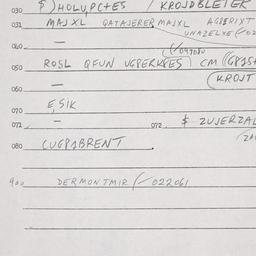 030 5) HOLUPC+ES / KROJDBLETEK
031 MAJXL QATAJERER MAJXL AGBPIXT
UNAZELXE (-02
040 —
050 ROSL QFUN UGPERKPES CM ((GPIS+
060 — (KROJT
070 E, SIK
071 — 072 $ ZUJERZAL
080 CUGPABRENT
900 DERMONTMIR (-022061